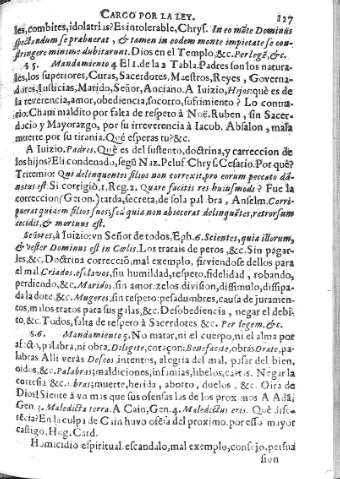 CARGO POR LA LEY. 127
les, combites, idolatrias? Es intolerable, Chrys. In eo mõte Dominũ
spectandum se præbuerat, & tamen in eodem monte impietate se con-
stringere minime dubitarunt. Dios en el Templo, &c. Per legē, &c.
55. Mandamiento 4. El 1. de la 2. Tabla. Padres son los natura-
les, los superiores, Curas, Sacerdotes, Maestros, Reyes, Governa-
dores, Iusticias, Marido, Señor, Anciano. A Iuizio, Hijos: què es de
la reverencia, amor, obediencia, socorro, sufrimiento? Lo contra-
rio. Cham maldito por falta de respeto à Noë. Ruben, sin Sacer-
docio y Mayorazgo, por su irreverencia à Iacob. Absalon, mala
muerte por su tirania. Què esperas tu? &c.
A Iuizio, Padres. Què es del sustento, doctrina, y correccion de
los hijos? Eli condenado, segũ Naz. Pelus. Chrys. Cesario. Por què?
Tritemio: Qui delinquentes filios non correxit, pro eorum peccato dã-
natus est. Si corrigiò, 1. Reg. 2. Quare facitis res huiusmodi? Fue la
correccion (Gerson.) tarda, secreta, de sola palabra, Anselm. Corri-
puerat quidem filios suos, sed quia non abiecerat delinquẽtes, retrorsum
cecidit, & mortuus est.
Señores, à Iuizio: vn Señor de todos, Eph. 6. Scientes, quia illorum,
& vester Dominus est in Cœlis. Los tratais de perros, &c. Sin pagar-
les, &c. Doctrina correcciõ, mal exemplo, sirviendose dellos para
el mal. Criados, esclavos, sin humildad, respeto, fidelidad, robando,
perdiendo, &c. Maridos, sin amor: zelos division, dissimulo, dissipa-
da la dote, &c. Mugeres, sin respeto: pesadumbres, causa de juramen-
tos, malos tratos para sus galas, &c. Desobediencia, negar el debi-
to, &c. Todos, falta de respeto à Sacerdotes &c. Per legem, &c.
56. Mandamiento 5. No matar, ni el cuerpo, ni el alma por
afecto, palabra, ni obra. Diligite, coraçon: Benefacite, obras: Orate, pa-
labras. Alli veràs Deseos, intentos, alegria del mal, pesar del bien,
odios, &c. Palabras; maldiciones, infamias, libelos, cartas. Negar la
cortesia &c. Obras; muerte, herida, aborto, duelos, &c. Oìra de
Dios! Siente à va mas que sus ofensas las de los proximos. A Adã,
Gen. 3. Maledicta terra. A Cain, Gen. 4. Maledictus eris. Què dife-
rẽcia? En la culpa de Cain huvo ofẽsa del proximo, por esso mayor
castigo, Hug. Card.
Homicidio espiritual, escandalo, mal exemplo, consejo, persua
sion